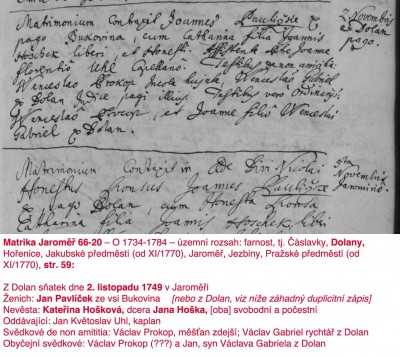 Matrimonium Contraxit Joannes Pauliczke ex
pago Bukovina, cum Catharina filia Joannis
Hoschek liberi, et Honesti. Assistente Patre Joanne
Florentio Uhl Capellano. Testibus de non amicitia:
Wenceslao Prokop Incola, Wenceslao Gabriel
ex Dolan Judice pagi. Testibus vero ordinarijs
Wenceslao, et Joanne filio Wenceslai
Gabriel ex Dolan.
2 Novembris
ex Dolan
pago.
Matrimonium Contraxit in Æde Divi Nicolai
Honestus Joannes Paulicze
ex pago Dolan, cum Honesta
Catharina filia Joannis Hoschek, liberi
9bris
Novembris
Matrika Jaroměř 66-20 – O 1734-1784 – územní rozsah: farnost, tj. Čáslavky, Dolany,
Hořenice, Jakubské předměstí (od XI/1770), Jaroměř, Jezbiny, Pražské předměstí (od
XI/1770), str. 59:
Z Dolan sňatek dne 2. listopadu 1749 v Jaroměři
Ženich: Jan Pavlíček ze vsi Bukovina [nebo z Dolan, viz níže záhadný duplicitní zápis]
Nevěsta: Kateřina Hošková, dcera Jana Hoška, [oba] svobodní a počestní
Oddávající: Jan Květoslav Uhl, kaplan
Svědkové de non amititia: Václav Prokop, měšťan zdejší; Václav Gabriel rychtář z Dolan
Obyčejní svědkové: Václav Prokop (???) a Jan, syn Václava Gabriela z Dolan